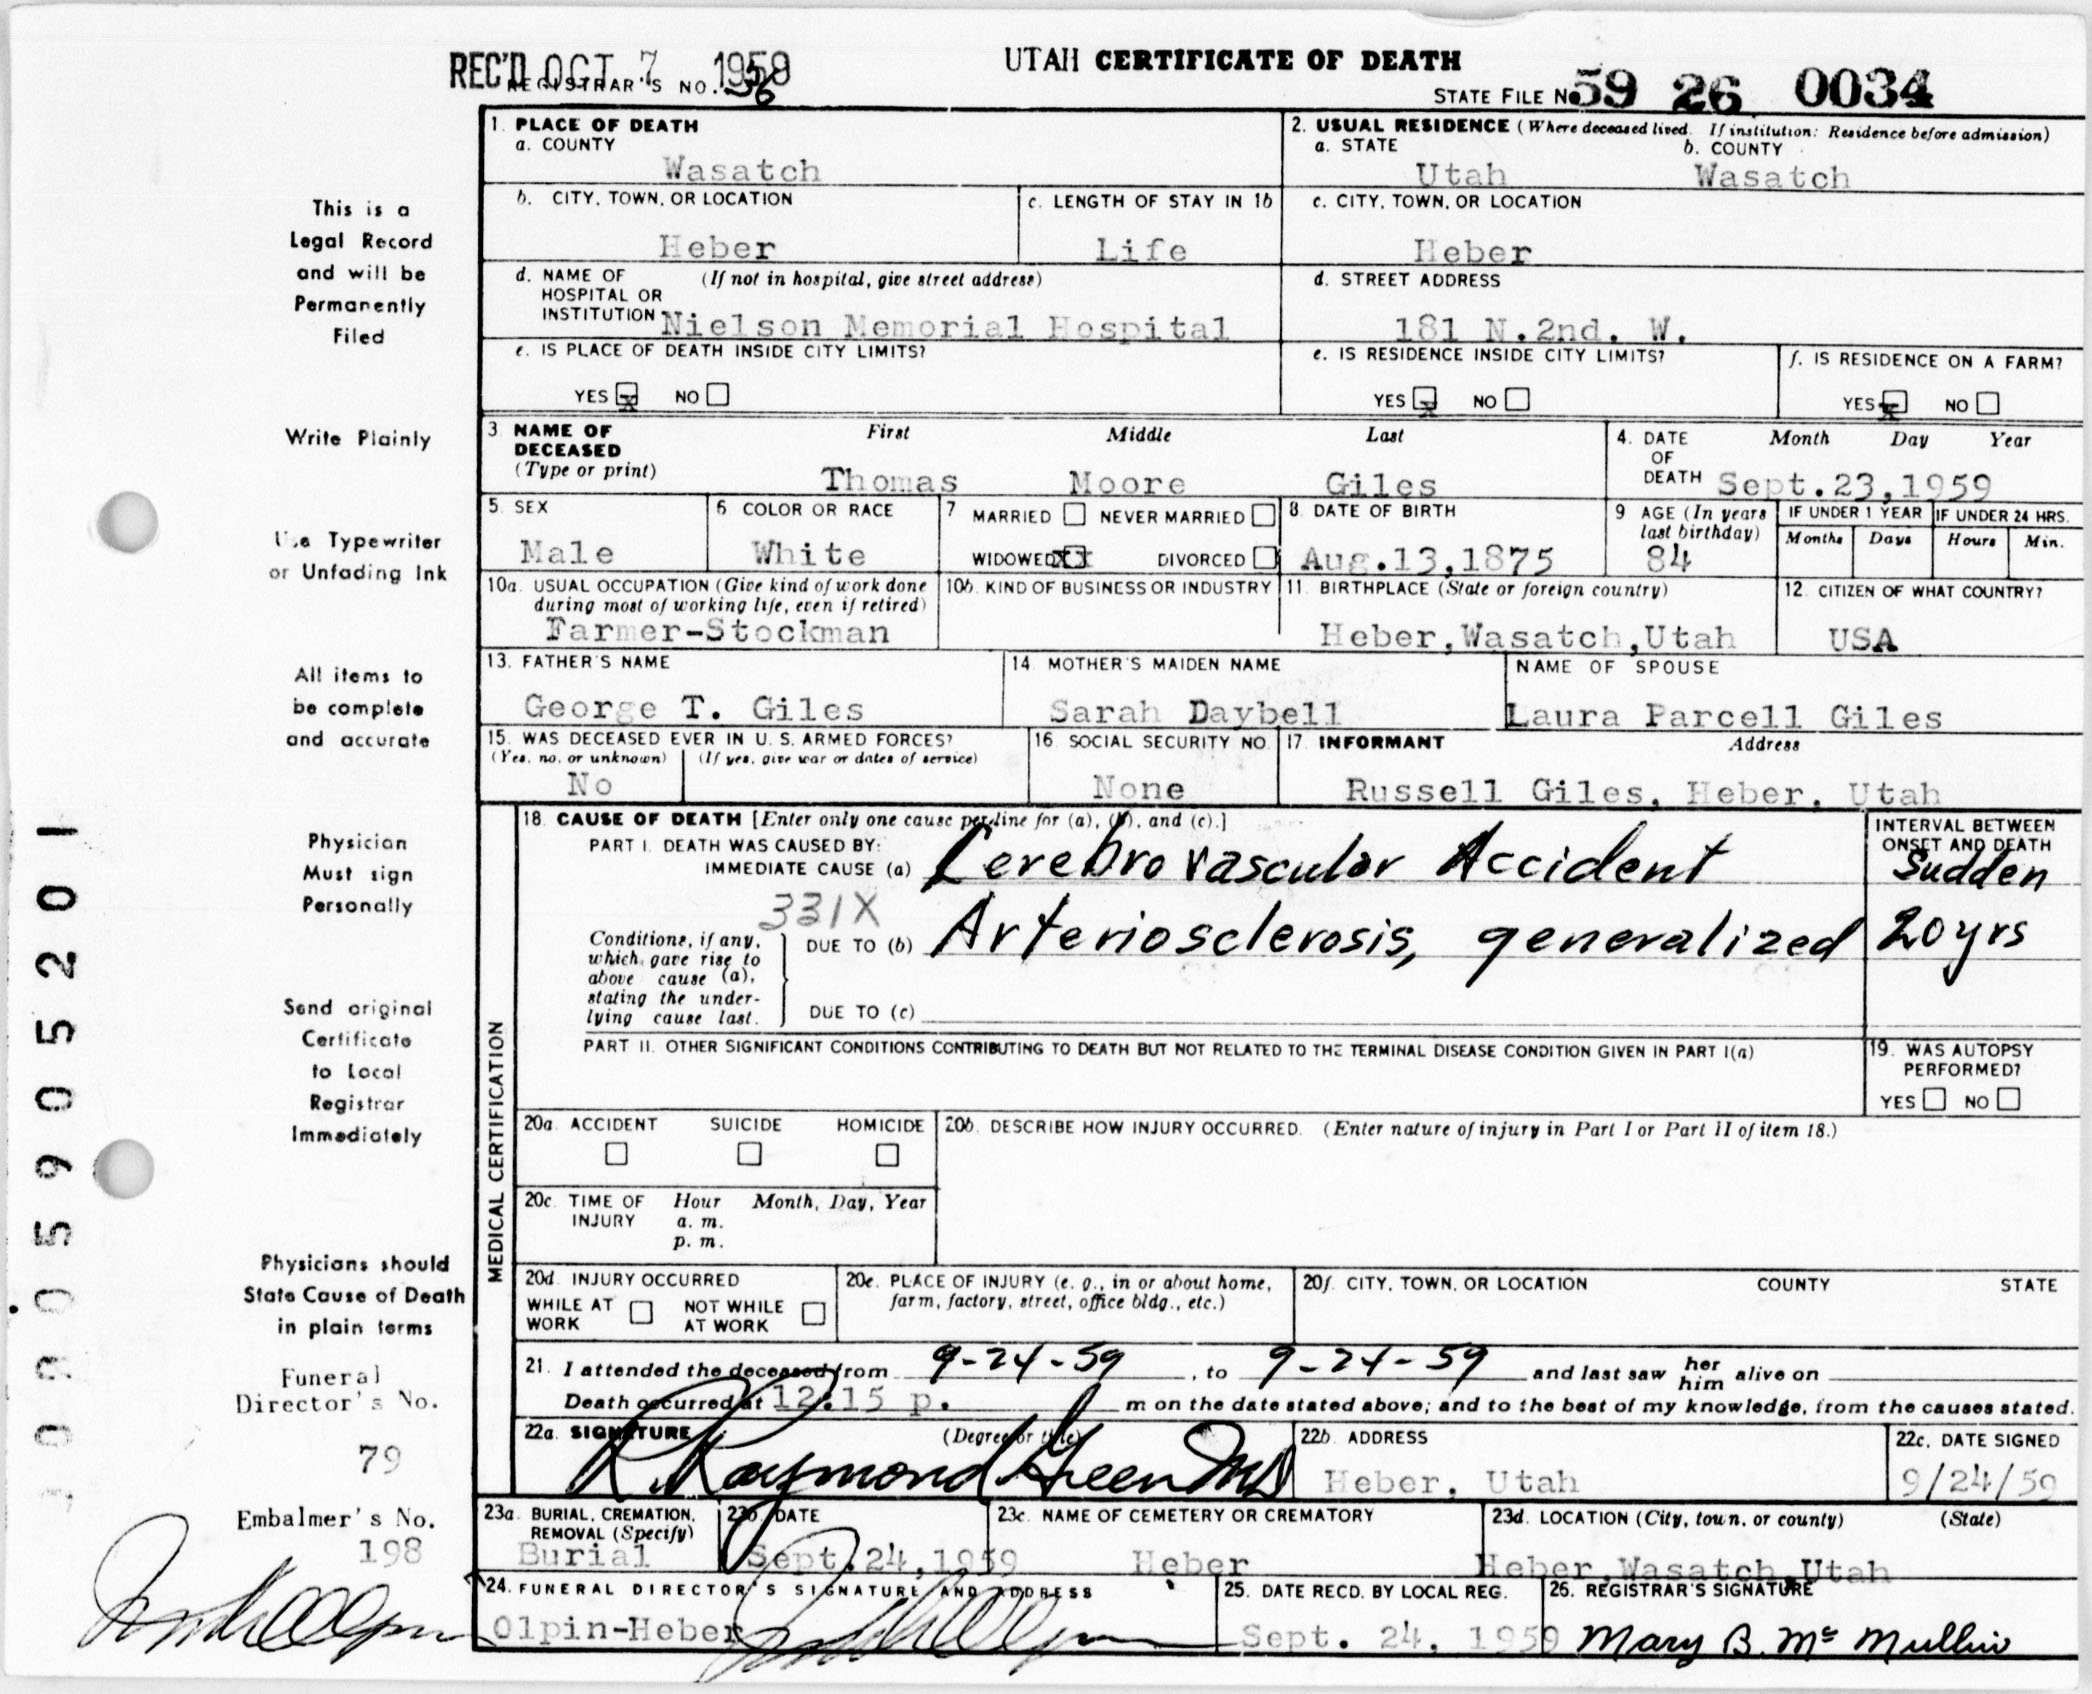 REC'D OCT 7 1959
REGISTRAR'S NO. 56
UTAH CERTIFICATE OF DEATH
STATE FILE No. 59 26 0034
1. PLACE OF DEATH
a. COUNTY
Wasatch
2. USUAL RESIDENCE (Where deceased lived. If institution: Residence before admission)
a. STATE b. COUNTY
Utah Wasatch
b. CITY, TOWN, OR LOCATION
Heber
c. LENGTH OF STAY IN 1b
Life
c. CITY, TOWN, OR LOCATION
Heber
d. NAME OF (If not in hospital, give street address)
HOSPITAL OR
INSTITUTION Nielson Memorial Hospital
d. STREET ADDRESS
181 N.2nd. W.
e. IS PLACE OF DEATH INSIDE CITY LIMITS?
YES X NO
e. IS RESIDENCE INSIDE CITY LIMITS?
YES X NO
f. IS RESIDENCE ON A FARM?
YES X NO
3. NAME OF DECEASED
(Type or print)
First Middle Last
Thomas Moore Giles
4. DATE OF DEATH
Month Day Year
Sept.23,1959
5. SEX
Male
6 COLOR OR RACE
White
7 MARRIED NEVER MARRIED
WIDOWED XX DIVORCED
8. DATE OF BIRTH
Aug.13,1875
9 AGE (In years last birthday)
84
IF UNDER 1 YEAR
Months Days
IF UNDER 24 HRS.
Hours Min.
10a. USUAL OCCUPATION (Give kind of work done
during most of working life, even if retired)
Farmer-Stockman
10b. KIND OF BUSINESS OR INDUSTRY
11. BIRTHPLACE (State or foreign country)
Heber,Wasatch,Utah
12. CITIZEN OF WHAT COUNTRY?
USA
13. FATHER'S NAME
George T. Giles
14. MOTHER'S MAIDEN NAME
Sarah Daybell
NAME OF SPOUSE
Laura Parcell Giles
15. WAS DECEASED EVER IN U. S. ARMED FORCES?
(Yes, no, or unknown) (If yes, give war or dates of service)
No
16. SOCIAL SECURITY NO.
None
17. INFORMANT Address
Russell Giles, Heber, Utah
MEDICAL CERTIFICATION
18. CAUSE OF DEATH [Enter only one cause per line for (a), (b), and (c).]
PART I. DEATH WAS CAUSED BY:
IMMEDIATE CAUSE (a) Cerebro vascular Accident
INTERVAL BETWEEN
ONSET AND DEATH
Sudden
331X
Conditions, if any,
which gave rise to
above cause (a),
stating the under-
lying cause last.
DUE TO (b) Arteriosclerosis, generalized 20 yrs
DUE TO (c)
PART II. OTHER SIGNIFICANT CONDITIONS CONTRIBUTING TO DEATH BUT NOT RELATED TO THE TERMINAL DISEASE CONDITION GIVEN IN PART I(a)
19. WAS AUTOPSY
PERFORMED?
YES NO
20a. ACCIDENT SUICIDE HOMICIDE
20b. DESCRIBE HOW INJURY OCCURRED. (Enter nature of injury in Part I or Part II of item 18.)
20c. TIME OF INJURY
Hour Month, Day, Year
a. m.
p. m.
20d. INJURY OCCURRED
WHILE AT WORK NOT WHILE AT WORK
20e. PLACE OF INJURY (e. g., in or about home,
farm, factory, street, office bldg., etc.)
20f. CITY, TOWN, OR LOCATION COUNTY STATE
21. I attended the deceased from 9-24-59, to 9-24-59 and last saw her him alive on
Death occurred at 12:15 p. m on the date stated above; and to the best of my knowledge, from the causes stated.
22a. SIGNATURE (Degree or title)
R. Raymond Green MD
22b. ADDRESS
Heber, Utah
22c. DATE SIGNED
9/24/59
23a. BURIAL, CREMATION,
REMOVAL (Specify)
Burial
23b. DATE
Sept.24,1959
23c. NAME OF CEMETERY OR CREMATORY
Heber
23d. LOCATION (City, town, or county) (State)
Heber,Wasatch,Utah
24. FUNERAL DIRECTOR'S SIGNATURE AND ADDRESS
Olpin-Heber
25. DATE RECD. BY LOCAL REG.
Sept. 24, 1959
26. REGISTRAR'S SIGNATURE
Mary B. Mc Mullin
This is a
Legal Record
and will be
Permanently
Filed
Write Plainly
Use Typewriter
or Unfading Ink
All items to
be complete
and accurate
Physician
Must sign
Personally
Send original
Certificate
to Local
Registrar
Immediately
Physicians should
State Cause of Death
in plain terms
Funeral
Director's No.
79
Embalmer's No.
198